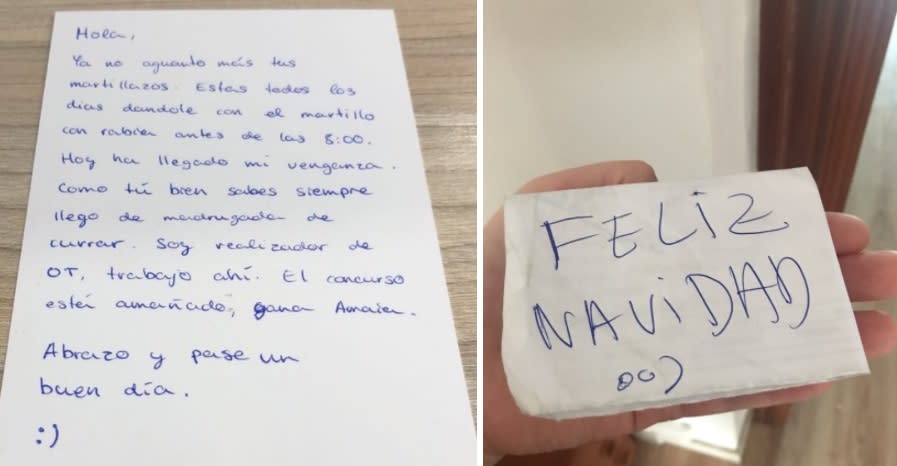 Hola,
Ya no aguanto más tus
martillazos. Estas todos los
dias dandole con el martillo
con rabia antes de las 8:00.
Hoy ha llegado mi venganza.
Como tú bien sabes siempre
llego de madrugada de
currar. Soy realizador de
OT, trabajo ahí. El concurso
está amañado, gana Amaia.
Abrazo y pase un
buen día.
:)
FELIZ
NAVIDAD
oo)